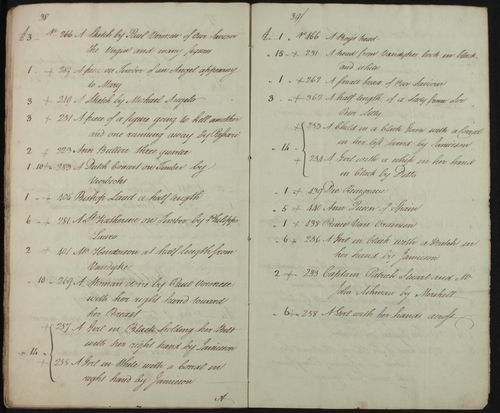 38
£ 3 Nº 266 A Sketch by Paul Veronese of Our Saviour
the Virgin and many figures
1 + 267 A piece on Timber of an Angel appearing
to Mary
3 + 210 A Sketch by Michael Angelo
3 + 251 A piece of a figure going to hall another
and one running away by
2 + 223 Ann Bullen three quarter
1 10 + 283 A Dutch Concert on Timber by
1 + 406 Bishop Laud a half length
6 + 281 A St Katherine on Timber by Philippo
Lauro
2 + 401 Mr Henderson a half length from
Vandyke
10 + 269 A Woman done by Paul Veronese
with her right hand toward
her Breast
14 + 257 A Girl in Black holding her Belt
with her right hand by Jamieson
+ 255 A Girl in White with a Coral in
right hand by Jamieson
A
39
£ 1 Nº 166 A Boys head
15 + 231 A head from Vandykes book in black
and white
1 + 262 A small head of Our Saviour
3 + 362 A half length of a Lady from Sir
Peter Lelly
14 + 253 A Child in a black frame with a
in her left hand by Jamieson
+ 254 A Girl with a whip in her hand
in black by Ditto
1 + 429 Doc
5 + 440 Ann Queen of Spain
1 + 138 Van
6 + 256 A Girl in black with a in
her hand by Jamieson
2 + 283 Captain Patrick Stuart and Mr
John by
6 + 258 A Girl with her hands across